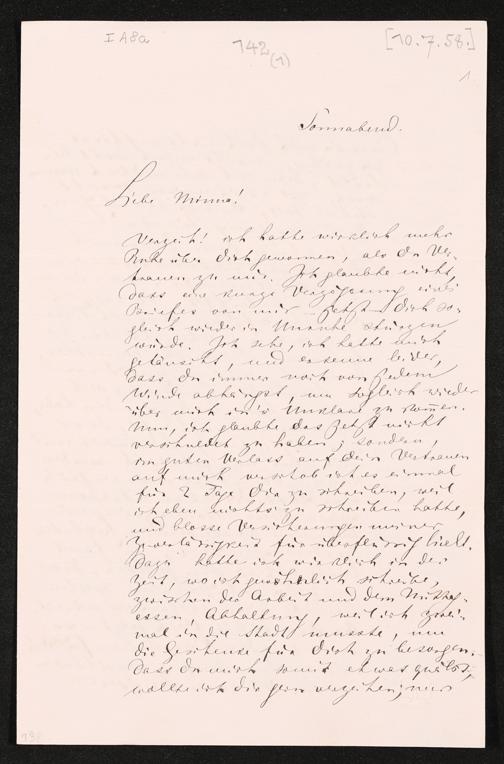 I A8a
142
(1)
[10.7.58.]
1
Sonnabend.
Liebe Minna!
Verzeih! ich hatte wirklich mehr
Ruhe über Dich gewonnen, als Du Ver-
trauen zu mir. Ich glaubte nicht,
dass eine kurze Verzögerung eines
Briefes von mir jetzt Dich so-
gleich wieder in Unruhe stürzen
würde. Ich sehe, ich hatte mich
getäuscht, und erkenne leider,
dass Du immer noch von jedem
Winde abhängst, um sogleich wieder
über mich in's Unklare zu kommen.
Nun, ich glaubte das jetzt nicht
verschuldet zu haben; sondern,
im guten Verlass auf Dein Vertrauen
auf mich verschob ich es einmal
für 2 Tage Dir zu schreiben, weil
ich eben nichts zu schreiben hatte,
und blosse Versicherungen meiner
Zuverlässigkeit für überflüssig hielt.
Dazu hatte ich wirklich in der
Zeit, wo ich gewöhnlich schreibe,
zwischen der Arbeit und dem Mittag-
essen, Abhaltung, weil ich zwei-
mal in die Stadt musste, um
die Geschenke für Dich zu besorgen.
Dass Du mich somit etwas quälst,
wollte ich Dir gern verzeihen; nur